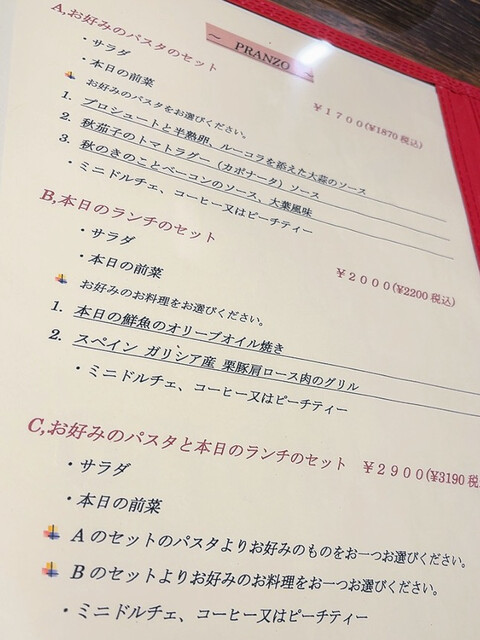 ～ PRANZO ～
A,お好みのパスタのセット ￥１７００(¥1870 税込)
・サラダ
・本日の前菜
お好みのパスタをお選びください。
1. プロシュートと半熟卵、ルーコラを添えた大蒜のソース
2. 秋茄子のトマトラグー（カポナータ）ソース
3. 秋のきのことベーコンのソース、大葉風味
・ミニドルチェ、コーヒー又はピーチティー
B,本日のランチのセット ￥２０００(¥2200 税込)
・サラダ
・本日の前菜
お好みのお料理をお選びください。
1. 本日の鮮魚のオリーブオイル焼き
2. スペイン ガリシア産 栗豚肩ロース肉のグリル
・ミニドルチェ、コーヒー又はピーチティー
C,お好みのパスタと本日のランチのセット ￥２９００(¥3190 税
・サラダ
・本日の前菜
Aのセットのパスタよりお好みのものをお一つお選びください。
Bのセットよりお好みのお料理をお一つお選びください。
・ミニドルチェ、コーヒー又はピーチティー